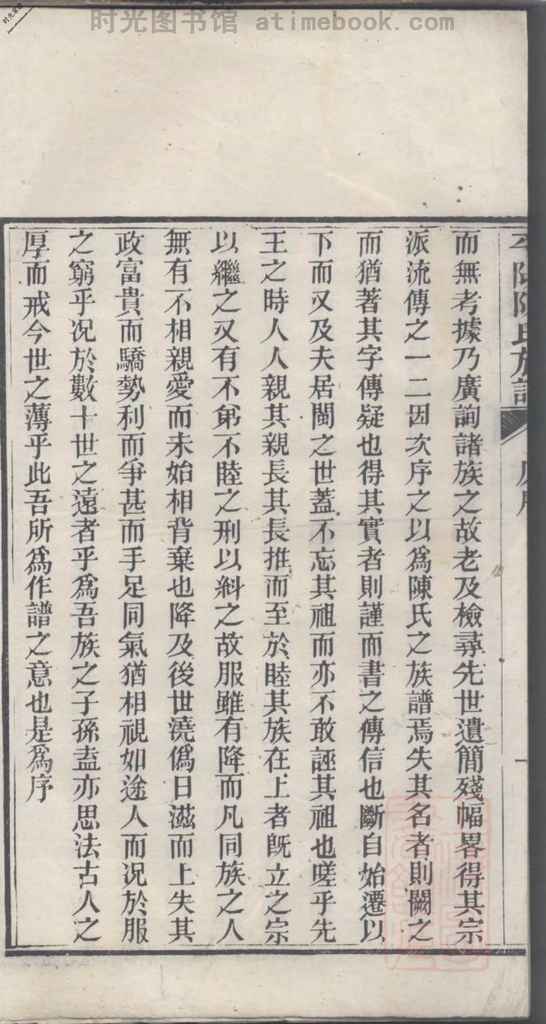 时光图书馆 atimebook.com
陳氏族譜
而無考據乃廣詢諸族之故老及檢尋先世遺簡殘幅畧得其宗
派流傳之一二因次序之以爲陳氏之族譜焉失其名者則闕之
而猶著其字傳疑也得其實者則謹而書之傳信也斷自始遷以
下而又及夫居閩之世蓋不忘其祖而亦不敢誣其祖也嗟乎先
王之時人人親其親長其長推而至於睦其族在上者旣立之宗
以繼之又有不弟不睦之刑以糾之故服雖有降而凡同族之人
無有不相親愛而未始相背棄也降及後世澆僞日滋而上失其
政富貴而驕勢利而爭甚而手足同氣猶相視如途人而况於服
之窮乎况於數十世之遠者乎爲吾族之子孫盍亦思法古人之
厚而戒今世之薄乎此吾所爲作譜之意也是爲序